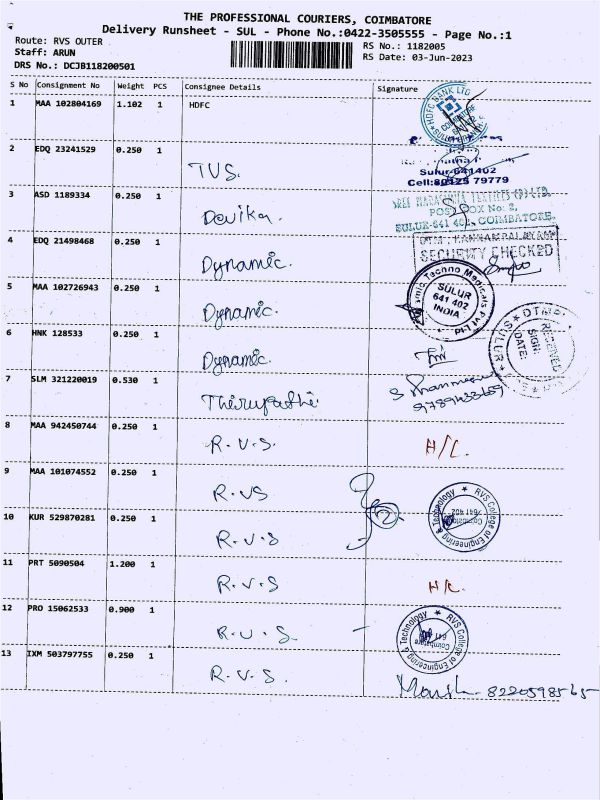 THE PROFESSIONAL COURIERS, COIMBATORE
Delivery Runsheet - SUL - Phone No.:0422-3505555 - Page No.:1
Route: RVS OUTER
RS No.: 1182005
Staff: ARUN
RS Date: 03-Jun-2023
DRS No.: DCJB118200501
S No Consignment No Weight PCS Consignee Details Signature
1 MAA 102804169 1.102 1 HDFC
HDFC BANK LTD
2 EDQ 23241529 0.250 1 TVS.
Sulur-641402
Cell:80125 79779
3 ASD 1189334 0.250 1 Devika.
POST BOX No: 2,
SULUR-641 402, COIMBATORE.
4 EDQ 21498468 0.250 1 Dynamic.
SECURITY CHECKED
5 MAA 102726943 0.250 1 Dynamic.
SULUR
641 402
INDIA
6 HNK 128533 0.250 1 Dynamic.
RECEIVED
SIGN:
DATE:
SULUR
7 SLM 321220019 0.530 1 Thirupathi
8 MAA 942450744 0.250 1 R.V.S. H/L.
9 MAA 101074552 0.250 1 R.VS
RVS College of Engineering & Technology
Coimbatore
641 402
10 KUR 529870281 0.250 1 R.V.S
11 PRT 5090504 1.200 1 R.V.S
12 PRO 15062533 0.900 1 R.V.S.
RVS College of Engineering & Technology
Coimbatore
13 IXM 503797755 0.250 1 R.V.S.
8220598565